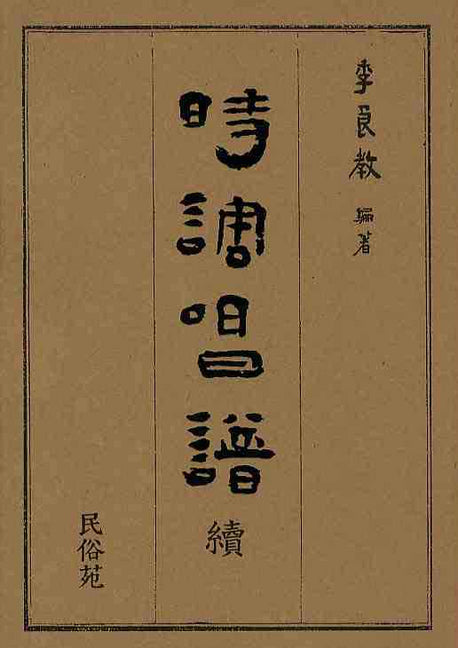 李良教 編著
時調唱譜 續
民俗苑